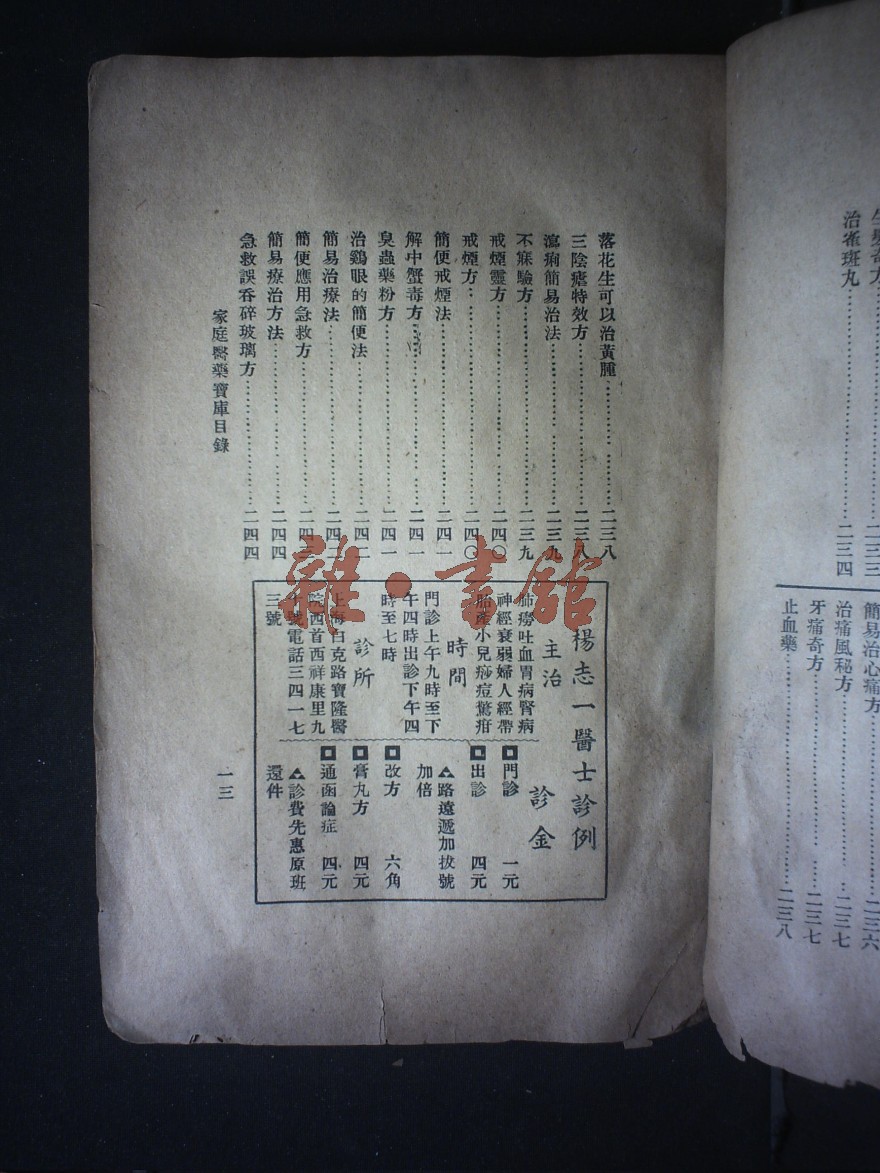 治雀斑丸…………二三四
簡易治心痛方…………二三六
治痛風秘方…………二三七
牙痛奇方…………二三七
止血藥…………二三八
落花生可以治黃腫…………二三八
三陰瘧特效方…………二三八
瀉痢簡易治法…………二三九
不寐驗方…………二三九
戒煙靈方…………二四〇
戒煙方…………二四〇
簡便戒煙法…………二四一
解中蟹毒方…………二四一
臭蟲藥粉方…………二四一
治鷄眼的簡便法…………二四二
簡易治療法…………二四二
簡便應用急救方…………二四三
簡易療治方法…………二四四
急救誤吞碎玻璃方…………二四四
家庭醫藥寶庫目錄
一三
楊志一醫士診例
主治
肺癆吐血胃病腎病
神經衰弱婦人經帶
胎產小兒痧痘驚疳
時間
門診上午九時至下
午四時出診下午四
時至七時
診所
上海白克路寶隆醫
院西首西祥康里九
十號電話三四一七
三號
診金
門診 一元
出診 四元
路遠遞加拔號
加倍
改方 六角
膏丸方 四元
通函論症 四元
診費先惠原班
還件
雜·書館